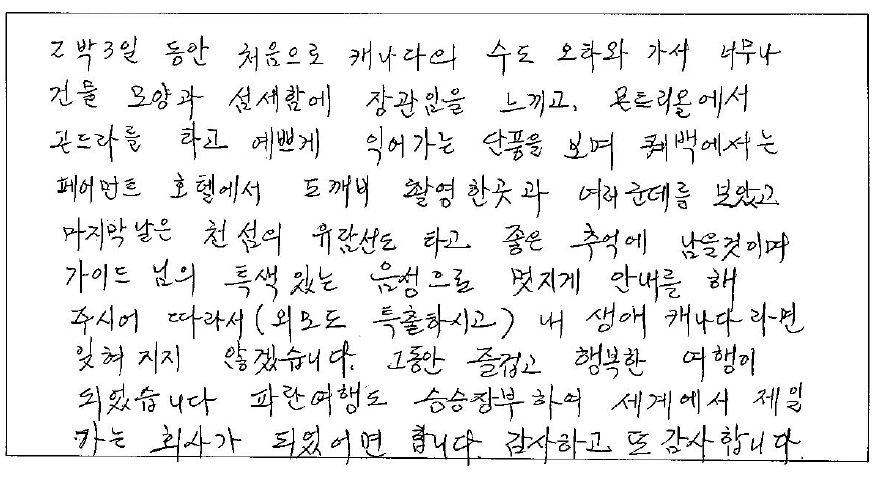 2박3일 동안 처음으로 캐나다의 수도 오타와 가서 너무나
건물 모양과 섬세함에 장관임을 느끼고, 몬트리올에서
곤드라를 타고 예쁘게 익어가는 단풍을 보며 퀘백에서는
페어먼트 호텔에서 도깨비 촬영한곳과 여러군데를 보았고
마지막날은 천섬의 유람선도 타고 좋은 추억에 남을것이며
가이드 님의 특색있는 음성으로 멋지게 안내를 해
주시어 따라서(외모도 특출하시고) 내 생애 캐나다라면
잊혀지지 않겠습니다. 그동안 즐겁고 행복한 여행이
되었습니다 파란여행도 승승장부하여 세계에서 제일
가는 회사가 되었어면 합니다. 감사하고 또 감사합니다.